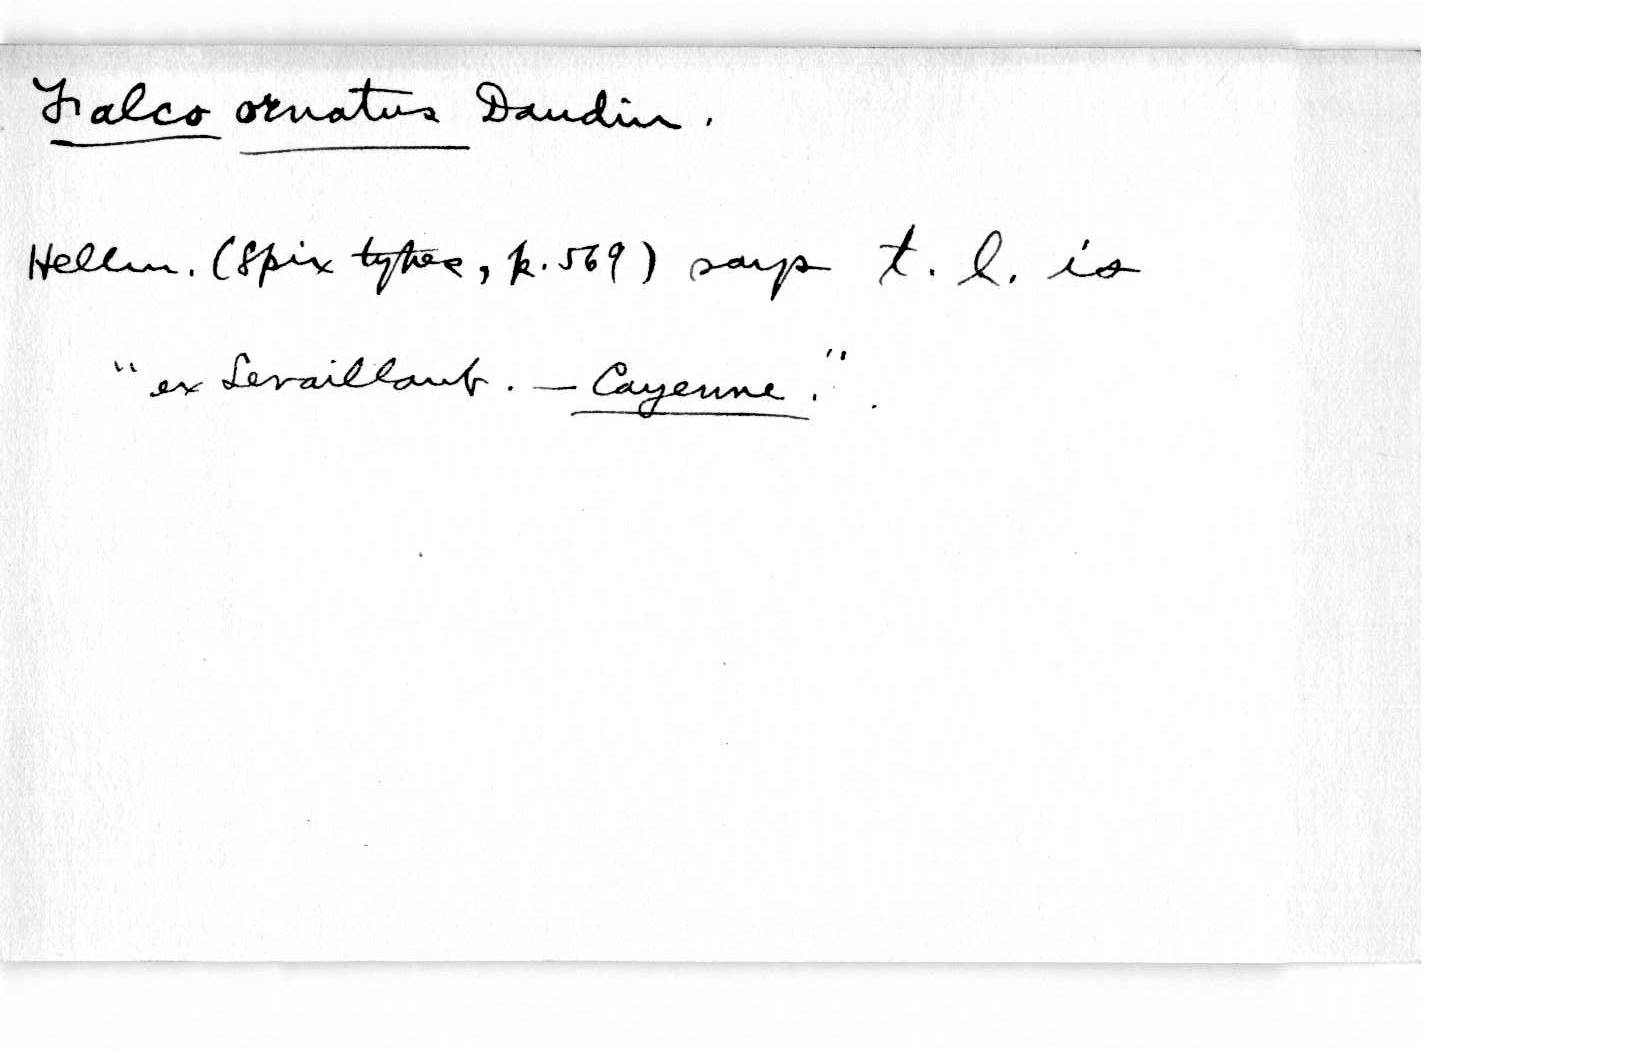 Falco ornatus Daudin.
Hellm. (Spix types, p. 569) says t. l. is
"ex Levaillant. — Cayenne."